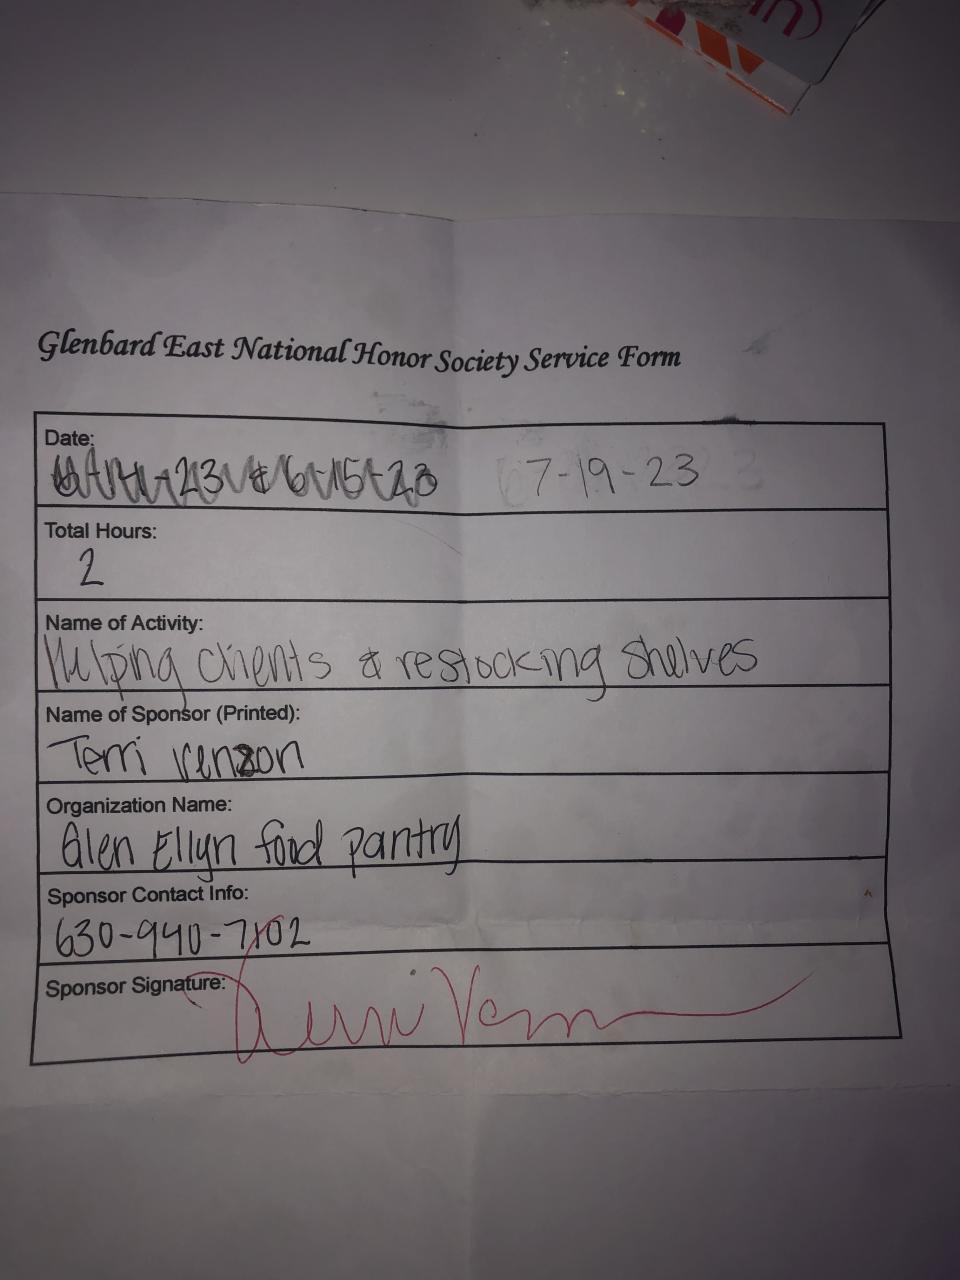 Glenbard East National Honor Society Service Form
Date:
-23 & 6-15-23 7-19-23
Total Hours:
2
Name of Activity:
Helping clients & restocking shelves
Name of Sponsor (Printed):
Terri Venzon
Organization Name:
Glen Ellyn food pantry
Sponsor Contact Info:
630-940-7102
Sponsor Signature:
Terri Venzon